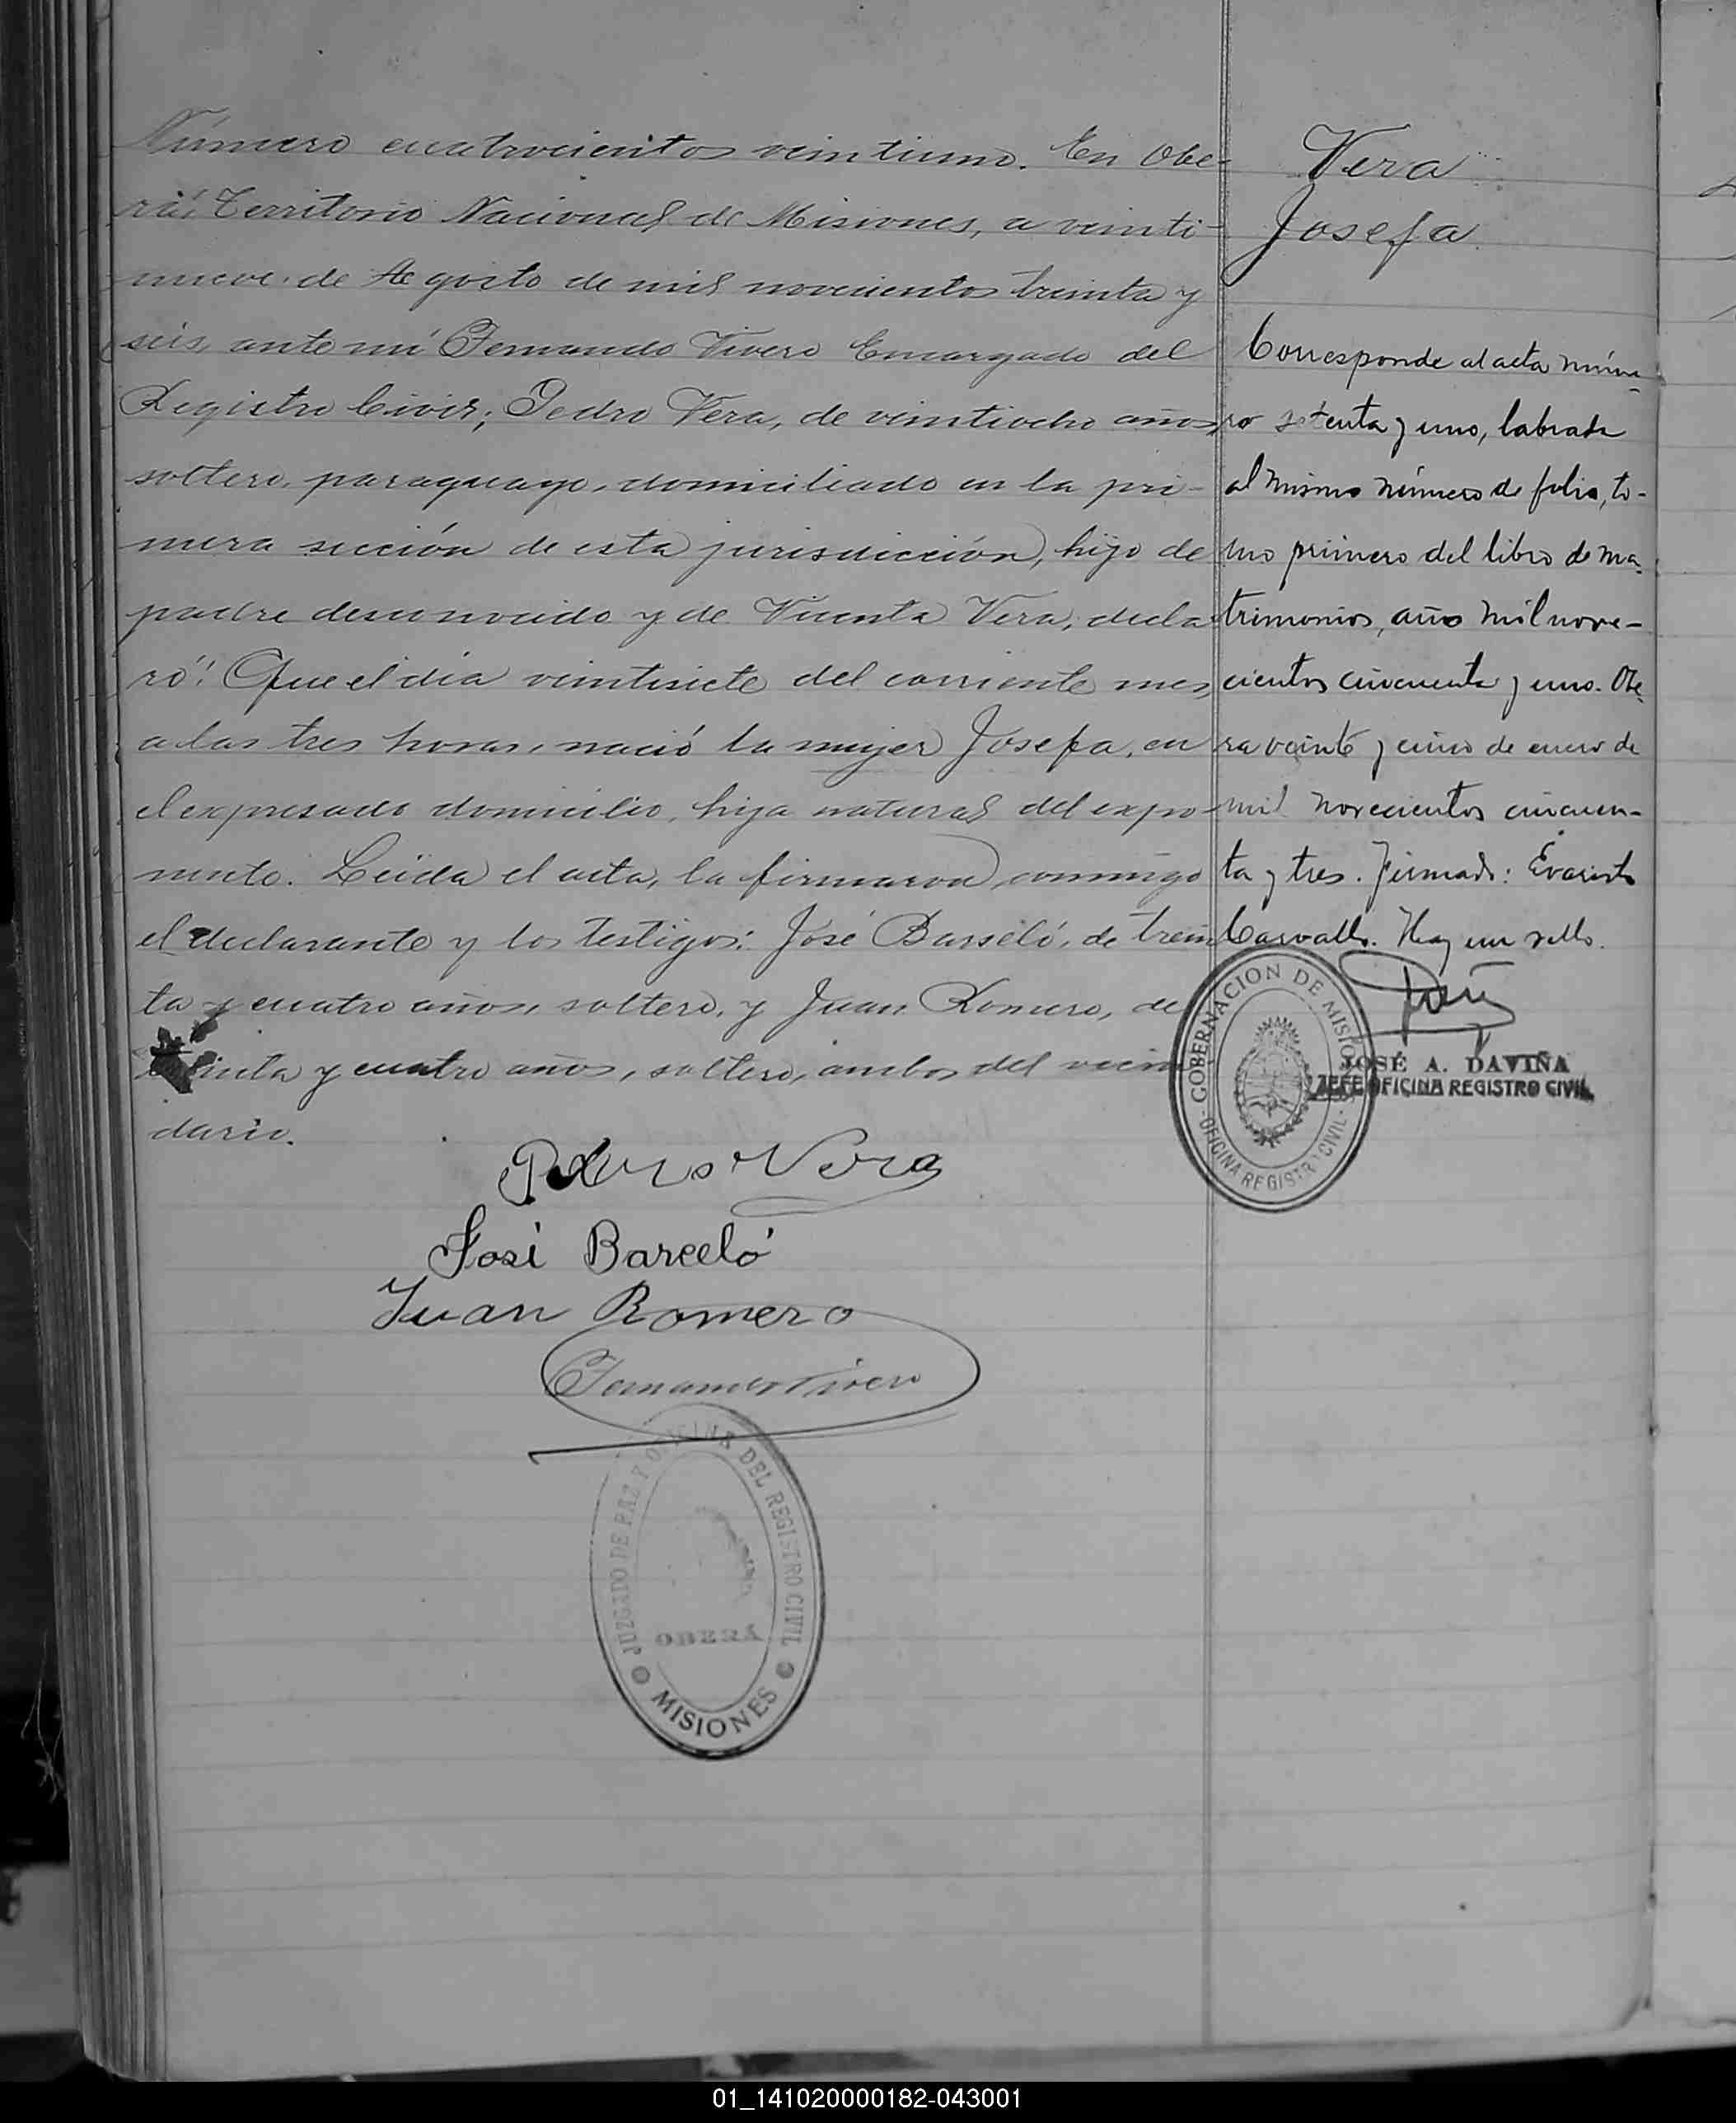 Número cuatrocientos veintiuno. En Obe-
rá, Territorio Nacional de Misiones, a veinti-
nueve de Agosto de mil novecientos treinta y
seis, ante mí Fernando Vivero Encargado del
Registro Civil; Pedro Vera, de veintiocho años,
soltero, paraguayo, domiciliado en la pri-
mera sección de esta jurisdicción, hijo de
padre desconocido y de Vicenta Vera, decla-
ró: Que el día veintisiete del corriente mes
a las tres horas, nació la mujer Josefa, en
el expresado domicilio, hija natural del expo-
nente. Leída el acta, la firmaron conmigo
el declarante y los testigos: José Barseló, de trein
ta y cuatro años, soltero, y Juan Romero, de
treinta y cuatro años, soltero, ambos del vecin
dario.
Pedro Vera
José Barceló
Juan Romero
Fernando Vivero
JUZGADO DE PAZ Y OFICINA DEL REGISTRO CIVIL
OBERÁ
MISIONES
Vera
Josefa
Corresponde al acta núme-
ro setenta y uno, labrada
al mismo número de folio, to-
mo primero del libro de ma-
trimonios, año mil nove-
cientos cincuenta y uno. Obe-
ra veinte y cinco de enero de
mil novecientos cincuen-
ta y tres. Firmado: Evaristo
Carvallo. Hay un sello.
GOBERNACION DE MISIONES
OFICINA REGISTRO CIVIL
JOSÉ A. DAVIÑA
JEFE OFICINA REGISTRO CIVIL
01_141020000182-043001